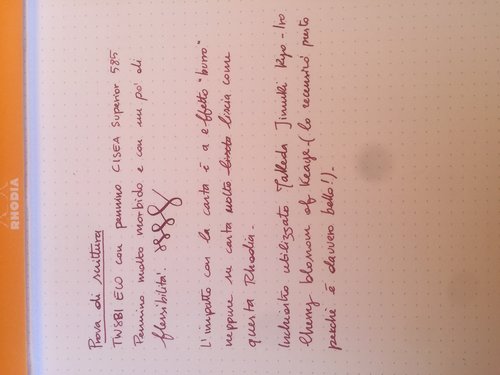 RHODIA
Prova di scrittura
TWSBI ECO con pennino CISEA Superior 585
Pennino molto morbido e con un po' di
flessibilità.
L'impatto con la carta è a effetto "burro"
neppure su carta molto liscia liscia come
questa Rhodia.
Inchiostro utilizzato Takeda Jimuki Kyo-Iro
Cherry blossom of Keage. (lo recensirò presto
perchè è davvero bello!).